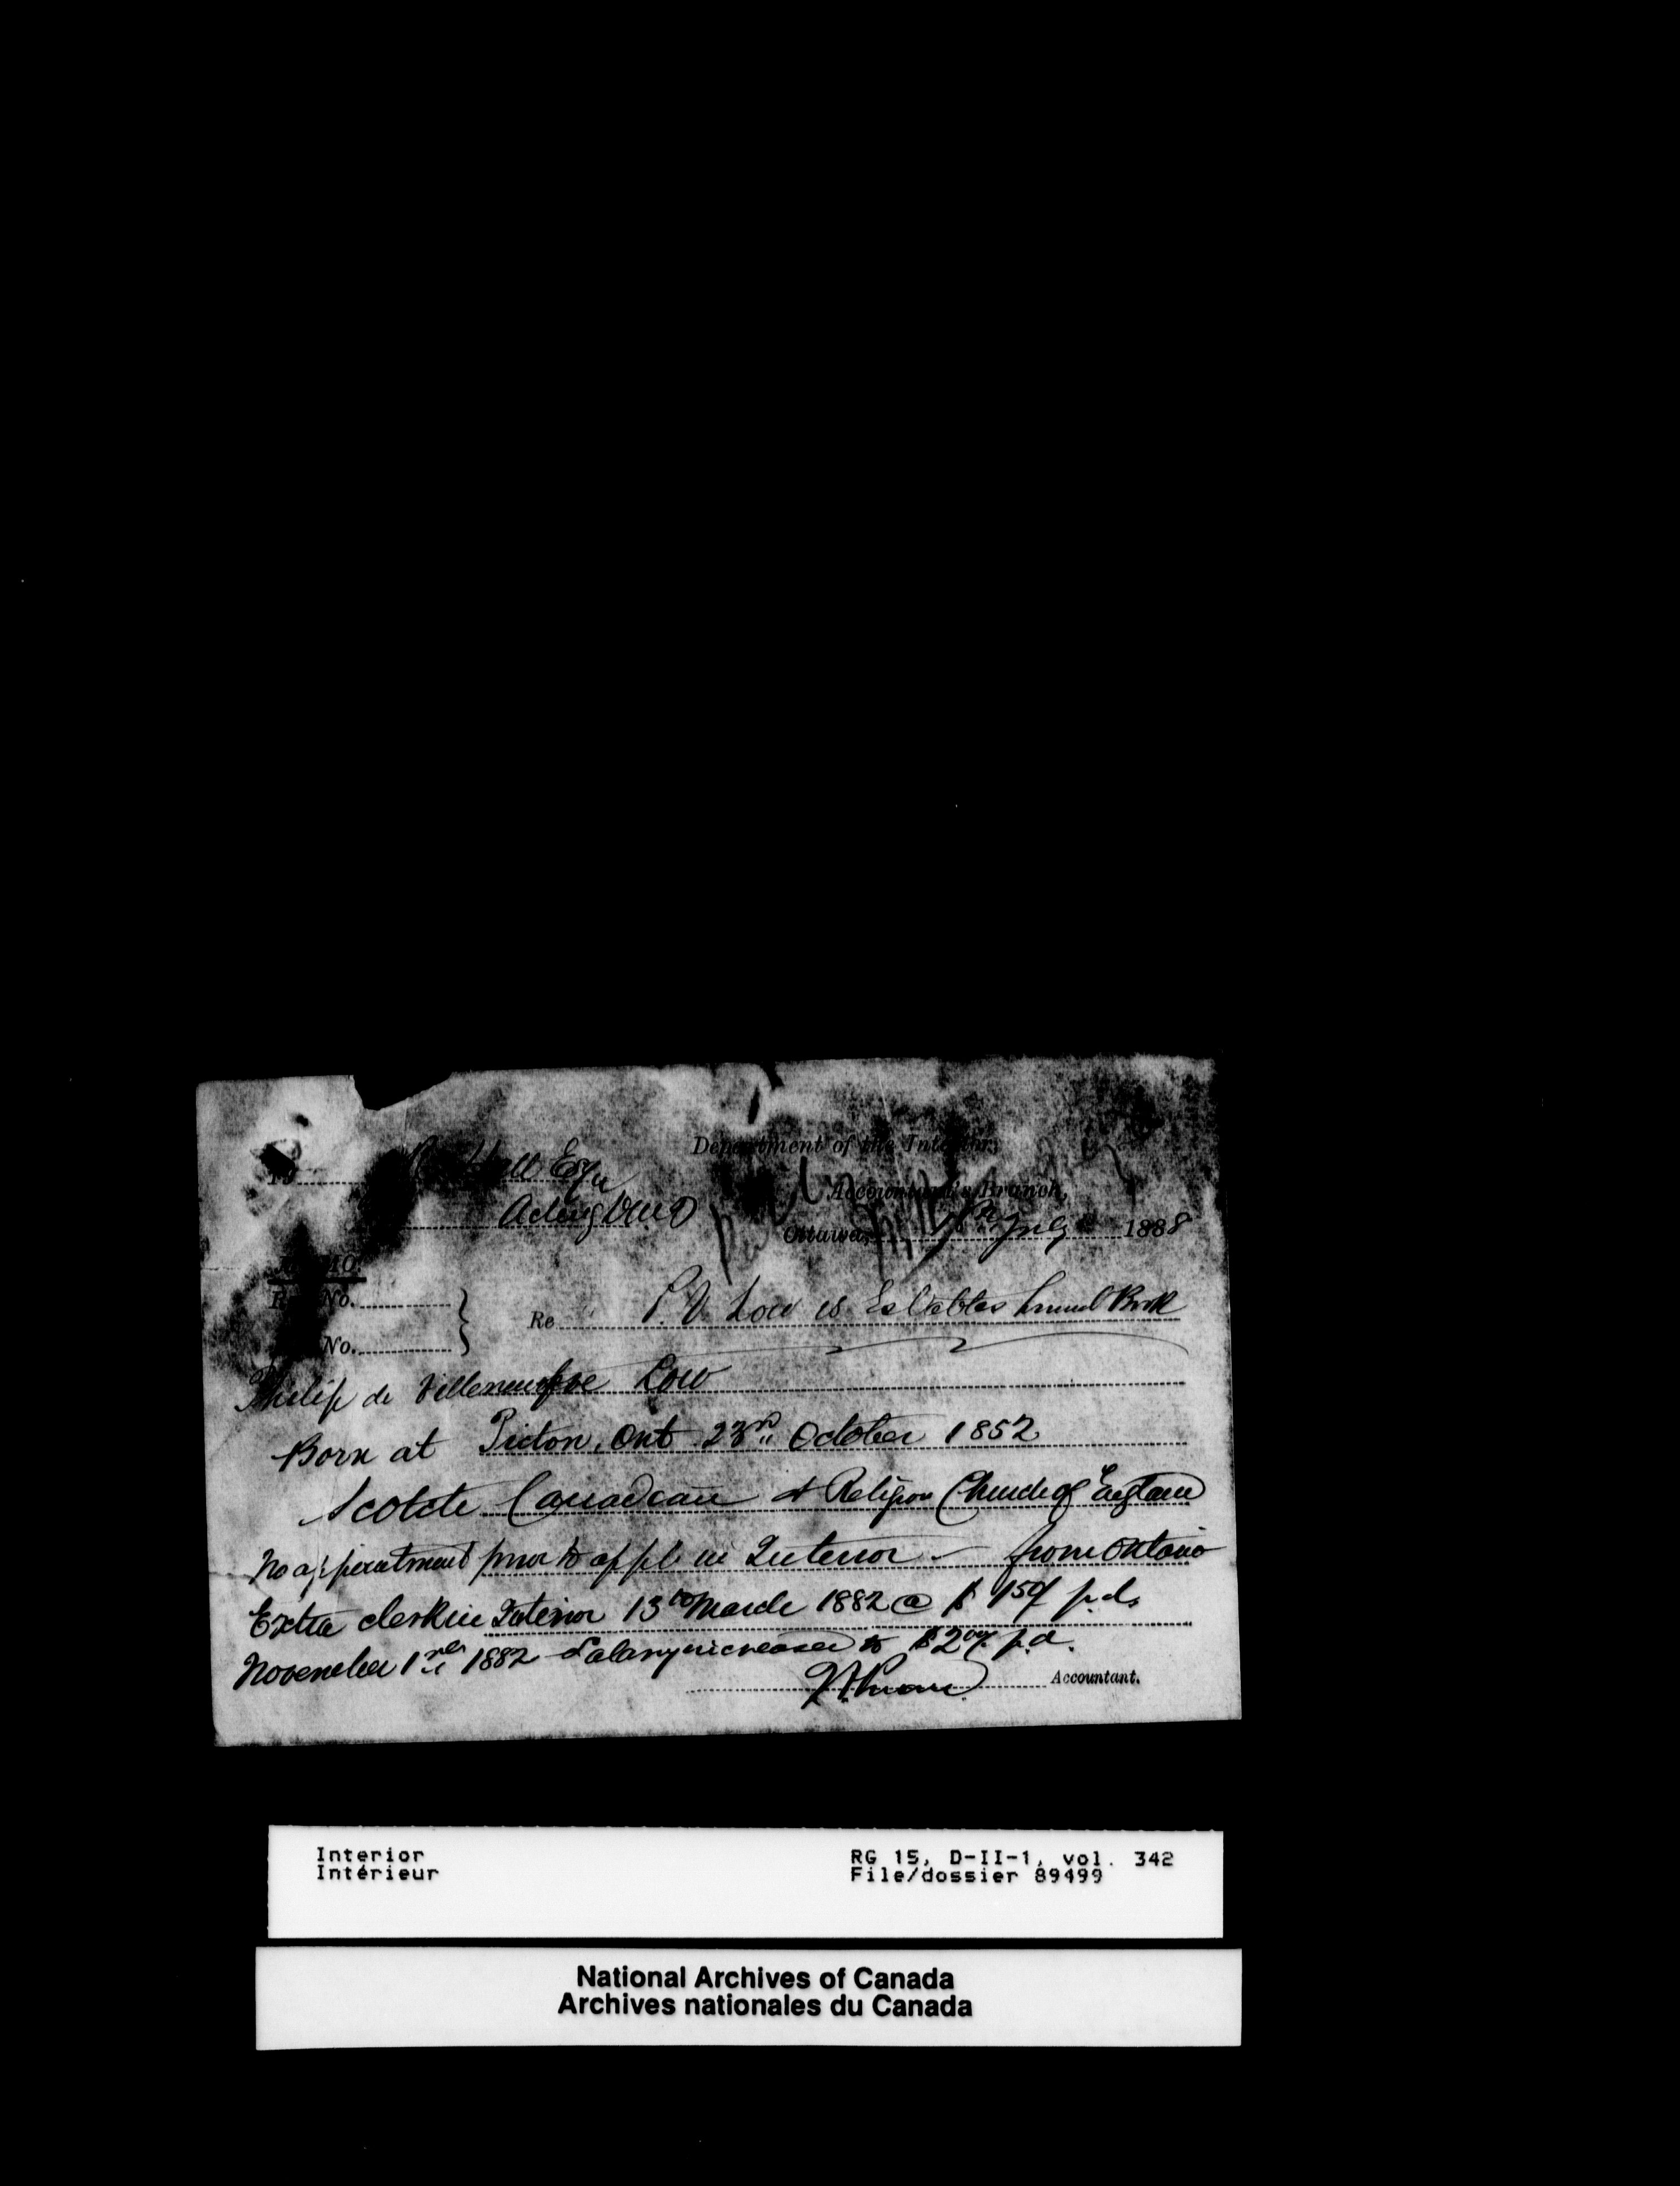 Department of the Interior,
To Hall Esqr
Accountant's Branch,
Acting
Ottawa, July 1888
No.
Re P. V. Low
No.
Philip de Villeneufve Low
Born at Picton, Ont 23rd October 1852
Scotch Canadian & Religion Church of England
No appointment prior to appt in Interior – from Ontario
Extra clerk in Interior 13th March 1882 @ $ 1 50/ p.d.
November 1st 1882 Salary increased to $2 00/ p.d.
Accountant.
Interior
Intérieur
RG 15, D-II-1, vol. 342
File/dossier 89499
National Archives of Canada
Archives nationales du Canada